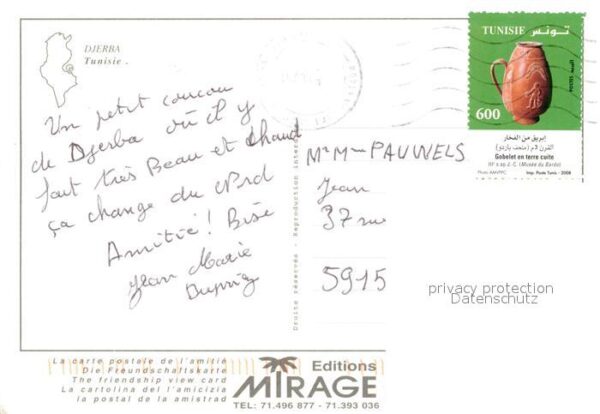 DJERBA
Tunisie .
Un petit coucou
de Djerba où il y
fait très Beau et chaud
ça change du Nord
Amitié! Bise
Jean Marie
TUNISIE تونس
600
POSTES البريد
إبريق من الفخار
القرن 3م (متحف باردو)
Gobelet en terre cuite
III° s ap J.-C. (Musée du Bardo)
Photo AMVPPC Imp. Poste Tunis - 2008
Mr Mme PAUWELS
Jean
37 rue
5915
privacy protection
Datenschutz
Droits réservés - Reproduction interdite
La carte postale de l'amitié
Die Freundschaftskarte
The friendship view card
La cartolina del l'amicizia
la postal de la amistrad
Editions
MIRAGE
TEL: 71.496 877 - 71.393 036